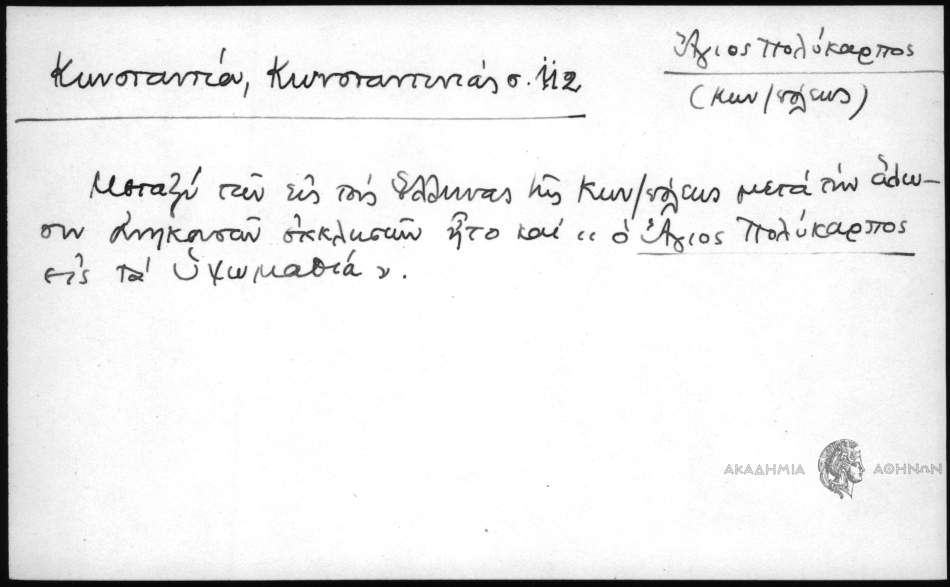 Κωνσταντίου, Κωνσταντινιάς σ. 112
Ἅγιος Πολύκαρπος
(Κων/πόλεως)
Μεταξύ τῶν εἰς τούς Ἕλληνας τῆς Κων/πόλεως μετά τήν ἅλω-
σιν ἀνηκουσῶν ἐκκλησιῶν ἦτο καί «ὁ Ἅγιος Πολύκαρπος
εἰς τά Ὑψωμαθιά».
ΑΚΑΔΗΜΙΑ ΑΘΗΝΩΝ